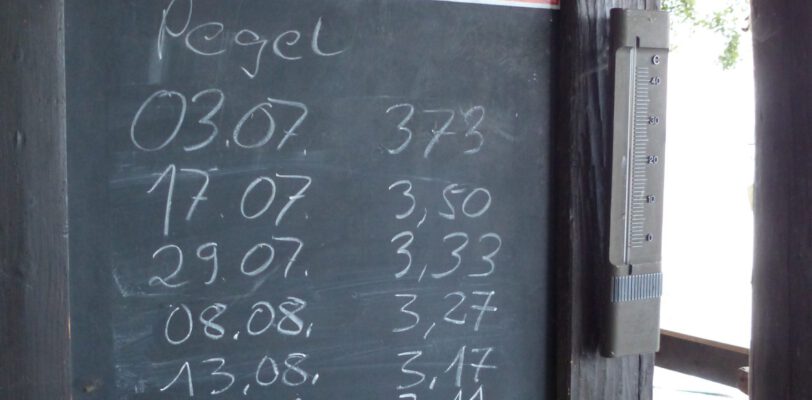 Pegel
03.07. 373
17.07. 3,50
29.07. 3,33
08.08. 3,27
13.08. 3,17
C
40
30
20
10
0